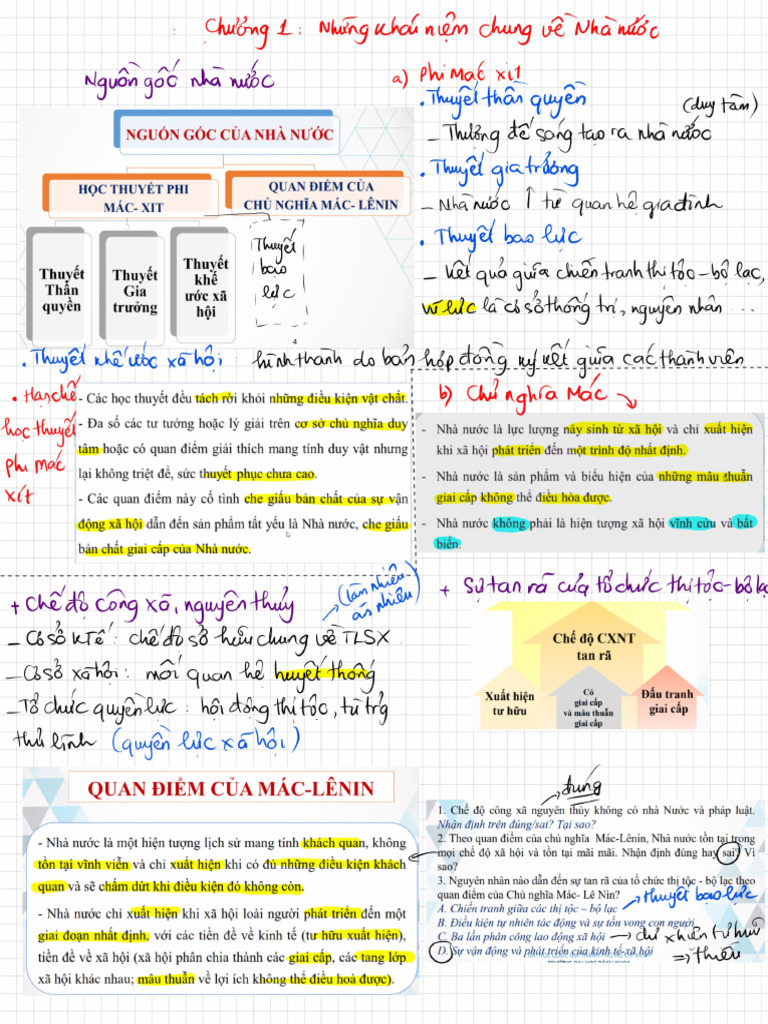 Chương 1 : Những khái niệm chung về Nhà nước
Nguồn gốc nhà nước
NGUỒN GỐC CỦA NHÀ NƯỚC
HỌC THUYẾT PHI
MÁC- XIT
QUAN ĐIỂM CỦA
CHỦ NGHĨA MÁC- LÊNIN
Thuyết
Thần
quyền
Thuyết
Gia
trưởng
Thuyết
khế
ước xã
hội
Thuyết
bạo
lực
4
a) Phi Mac xit
• Thuyết thần quyền
(duy tâm)
– Thượng đế sáng tạo ra nhà nước
• Thuyết gia trưởng
– Nhà nước ↑ từ quan hệ gia đình
• Thuyết bạo lực
– Kết quả giữa chiến tranh thị tộc – bộ lạc,
vũ lực là cơ sở thống trị, nguyên nhân ...
• Thuyết khế ước xã hội : hình thành do bản hợp đồng ký kết giữa các thành viên
• Hạn chế
học thuyết
phi mác
xít
- Các học thuyết đều tách rời khỏi những điều kiện vật chất.
- Đa số các tư tưởng hoặc lý giải trên cơ sở chủ nghĩa duy
tâm hoặc có quan điểm giải thích mang tính duy vật nhưng
lại không triệt để, sức thuyết phục chưa cao.
- Các quan điểm này cố tình che giấu bản chất của sự vận
động xã hội dẫn đến sản phẩm tất yếu là Nhà nước, che giấu
bản chất giai cấp của Nhà nước.
b) Chủ nghĩa Mác
- Nhà nước là lực lượng nảy sinh từ xã hội và chỉ xuất hiện
khi xã hội phát triển đến một trình độ nhất định.
- Nhà nước là sản phẩm và biểu hiện của những mâu thuẫn
giai cấp không thể điều hòa được.
- Nhà nước không phải là hiện tượng xã hội vĩnh cửu và bất
biến.
+ Chế độ công xã, nguyên thủy
(tận nhiên
ăn nhiên)
– Cơ sở KTế : chế độ sở hữu chung về TLSX
– Cơ sở xã hội : mối quan hệ huyết thống
– Tổ chức quyền lực : hội đồng thị tộc, tù trg
thủ lĩnh (quyền lực xã hội)
+ Sự tan rã của tổ chức thị tộc – bộ lạc
Chế độ CXNT
tan rã
Xuất hiện
tư hữu
Có
giai cấp
và mâu thuẫn
giai cấp
Đấu tranh
giai cấp
QUAN ĐIỂM CỦA MÁC-LÊNIN
- Nhà nước là một hiện tượng lịch sử mang tính khách quan, không
tồn tại vĩnh viễn và chỉ xuất hiện khi có đủ những điều kiện khách
quan và sẽ chấm dứt khi điều kiện đó không còn.
- Nhà nước chỉ xuất hiện khi xã hội loài người phát triển đến một
giai đoạn nhất định, với các tiền đề về kinh tế (tư hữu xuất hiện),
tiền đề về xã hội (xã hội phân chia thành các giai cấp, các tầng lớp
xã hội khác nhau; mâu thuẫn về lợi ích không thể điều hoà được).
đúng
1. Chế độ công xã nguyên thủy không có nhà Nước và pháp luật.
Nhận định trên đúng/sai? Tại sao?
2. Theo quan điểm của chủ nghĩa Mác-Lênin, Nhà nước tồn tại trong
mọi chế độ xã hội và tồn tại mãi mãi. Nhận định đúng hay sai? Vì
sao?
3. Nguyên nhân nào dẫn đến sự tan rã của tổ chức thị tộc - bộ lạc theo
quan điểm của Chủ nghĩa Mác- Lê Nin?
A. Chiến tranh giữa các thị tộc – bộ lạc → thuyết bạo lực
B. Điều kiện tự nhiên tác động và sự tồn vong con người
C. Ba lần phân công lao động xã hội → chỉ x hiện tư hữu
⇒ thiếu
D. Sự vận động và phát triển của kinh tế-xã hội